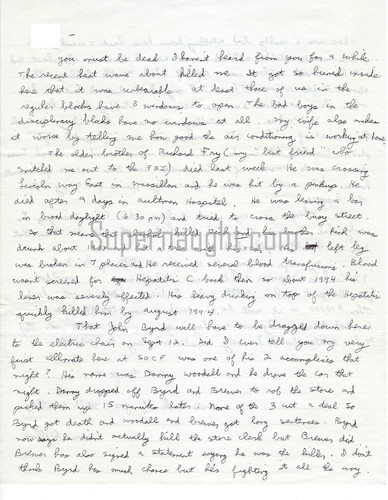 you must be dead. I haven't heard from you for a while.
The recent heat wave about killed me. It got so humid inside
here that it was unbearable. at least those of us in the
regular blocks have 8 windows to open. The bad boys in the
disciplinary blocks have no windows at all. My wife also makes
it worse by telling me how good the air conditioning is working at home.
The older brother of Richard Fry (my "best friend" who
snitched me out to the FBI) died last week. He was crossing
Lincoln Way East in massillon and he was hit by a pickup. He
died after 9 days in aultman Hospital. He was leaving a bar
in broad daylight (6:30 pm) and tried to cross the busy street.
So that means the killed Rich and his brother. Rich was
drunk about left leg
was broken in 7 places and He received several blood transfusions. Blood
wasn't screened for Hepatitis C back then so about 1994 his
liver was severely effected. His heavy drinking on top of the Hepatitis
quickly killed him by august 1994.
That John Byrd will have to be dragged down here
to the electric chair on Sept 12. Did I ever tell you my very
first cellmate here at SOCF was one of his 2 accomplices that
night? His name was Danny Woodall and he drove the car that
night. Danny dropped off Byrd and Brewer to rob the store and
picked them up 15 minutes later. None of the 3 cut a deal so
Byrd got death and Woodall and brewer got long sentences. Byrd
now says he didn't actually kill the store clerk but Brewer did.
Brewer has also signed a statement saying he was the killer. I don't
think Byrd has much chance but he's fighting it all the way.
Supernaught.com